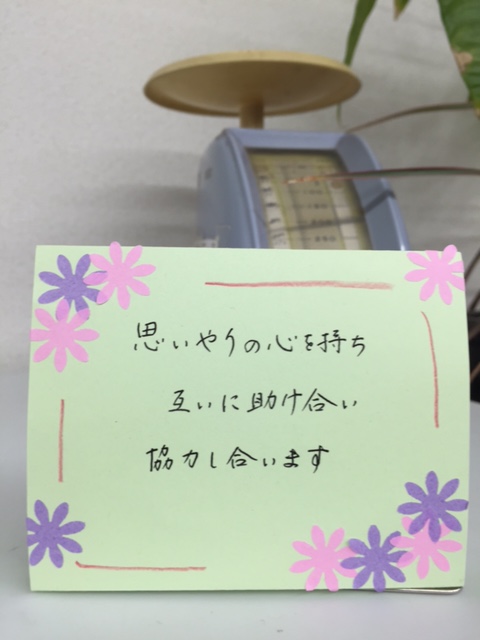 思いやりの心を持ち
互いに助け合い
協力し合います